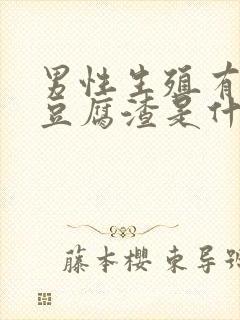 男性生殖有
豆腐渣是什
藤本樱 束导